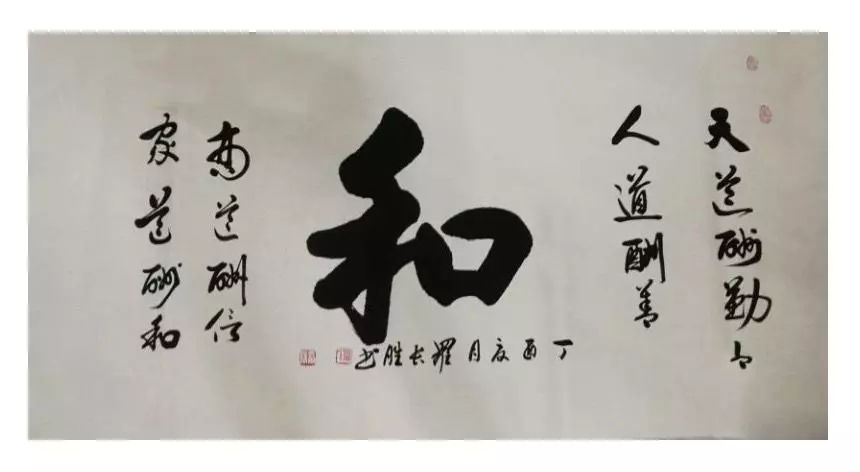 天道酬勤
人道酬善
和
商道酬信
家道酬和
丁酉夏月羅长胜书